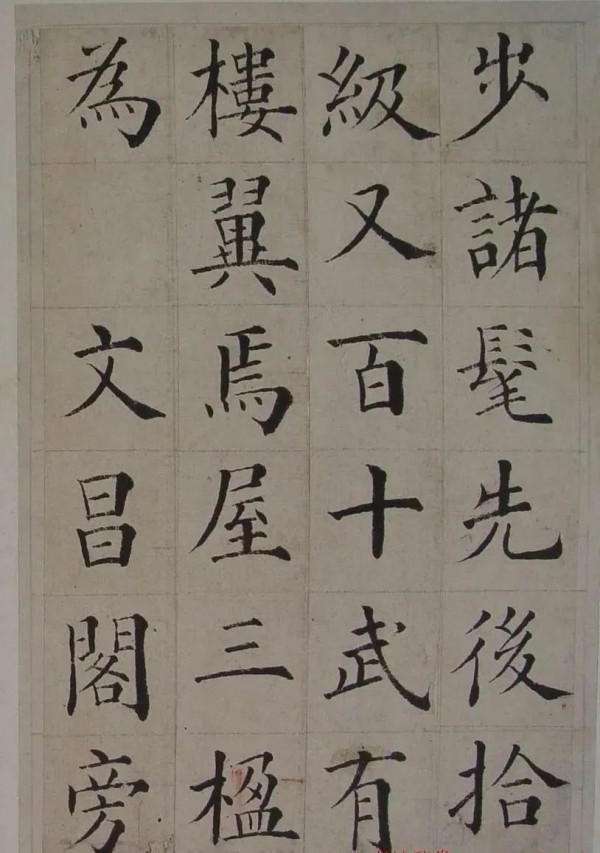 步諸髦先後拾
級又百十武有
樓翼焉屋三楹
為 文昌閣旁